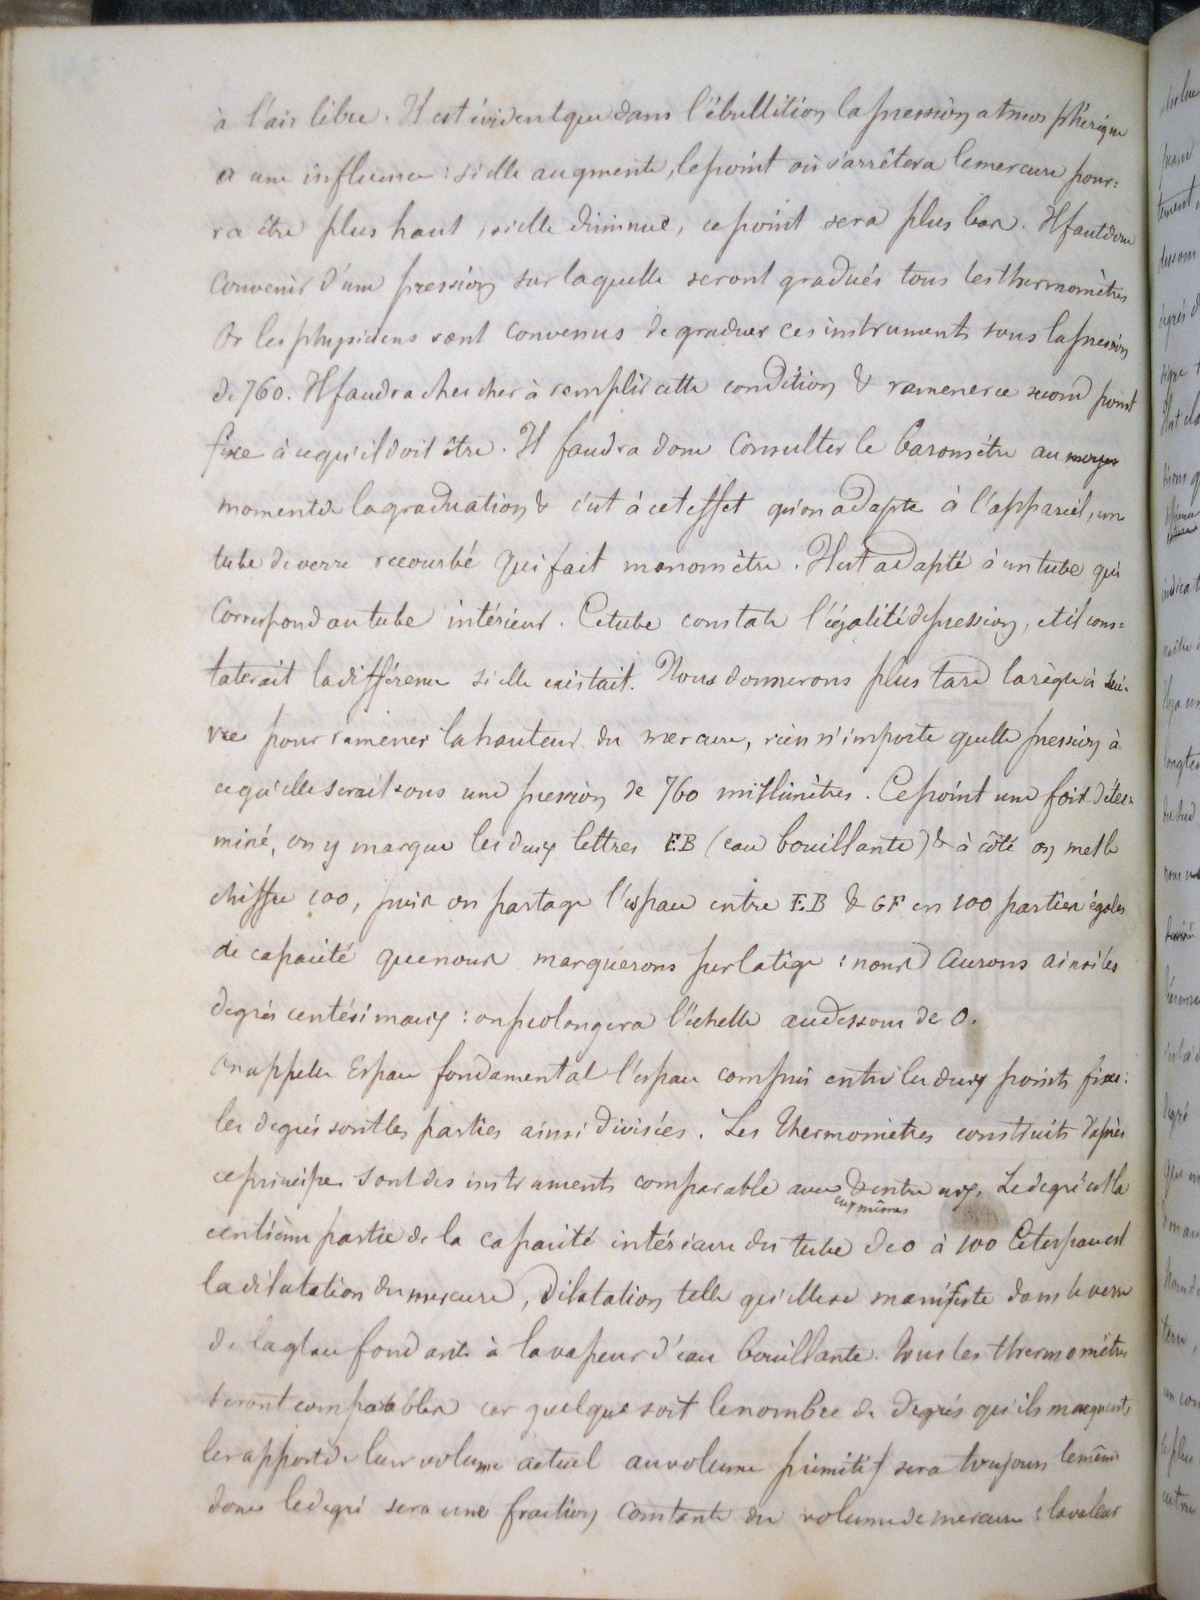 à l'air libre. Il est évident que dans l'ébullition la pression atmosphérique
a une influence : si elle augmente, le point où s'arrêtera le mercure pour=
ra être plus haut, si elle diminue, ce point sera plus bas. Il faut donc
convenir d'une pression sur laquelle seront gradués tous les thermomètres
Or les physiciens sont convenus de graduer ces instruments sous la pression
de 760. Il faudra chercher à remplir cette condition & ramener ce second point
fixe à ce qu'il doit être. Il faudra donc consulter le baromètre au
moment de la graduation & c'est à cet effet qu'on adapte à l'appareil, un
tube de verre recourbé qui fait manomètre. Il est adapté à un tube qui
correspond au tube intérieur. Ce tube constate l'égalité de pression, et il cons=
taterait la différence si elle existait. Nous donnerons plus tard la règle à sui=
vre pour ramener la hauteur du mercure, sous n'importe quelle pression à
ce qu'elle serait sous une pression de 760 millimètres. Ce point une fois déter=
miné, on y marque les deux lettres E.B (eau bouillante) & à côté on met le
chiffre 100, puis on partage l'espace entre E.B & G.F en 100 parties égales
de capacité que nous marquerons sur la tige : nous aurons ainsi les
degrés centésimaux : on prolongera l'échelle au dessous de 0.
On appelle Espace fondamental l'espace compris entre les deux points fixes :
les degrés sont les parties ainsi divisées. Les thermomètres construits d'après
ce principe sont des instruments comparable avec eux mêmes & entre eux. Le degré est la
centième partie de la capacité intérieure du tube de 0 à 100 Cet espace est
la dilatation du mercure, dilatation telle qu'elle se manifeste dans le verre
de la glace fondante à la vapeur d'eau bouillante. Tous les thermomètres
seront comparables car quelque soit le nombre de degrés qu'ils marquent,
le rapport de leur volume actuel au volume primitif sera toujours le même
donc le degré sera une fraction constante du volume de mercure : la valeur